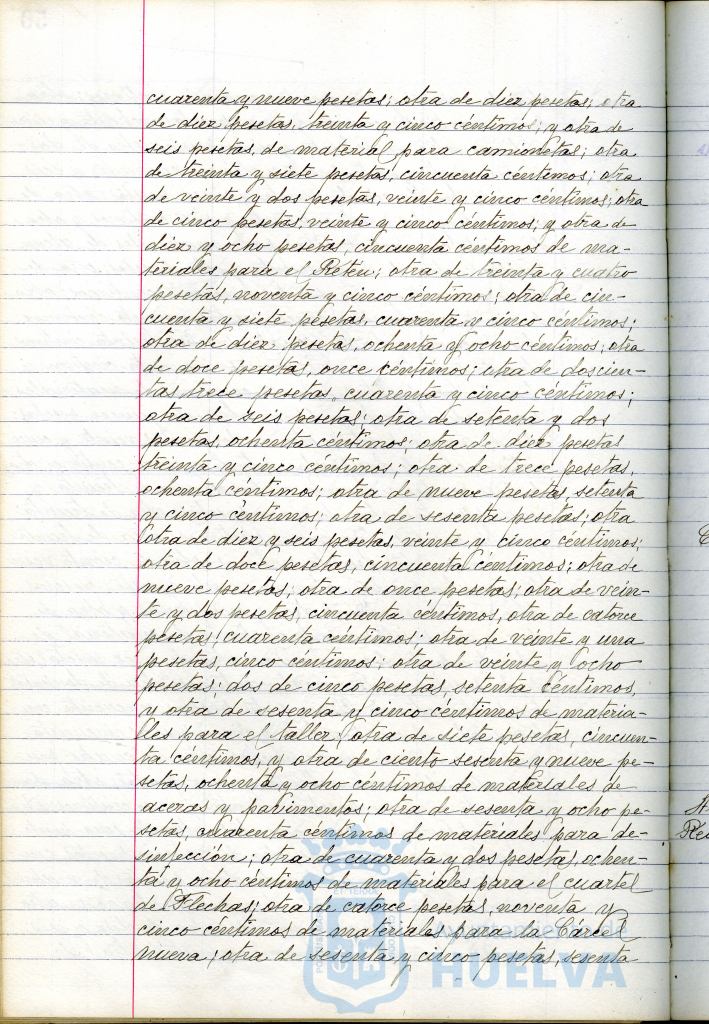 cuarenta y nueve pesetas; otra de diez pesetas; otra
de diez pesetas, treinta y cinco céntimos; y otra de
seis pesetas, de material para camionetas; otra
de treinta y siete pesetas, cincuenta céntimos; otra
de veinte y dos pesetas, veinte y cinco céntimos; otra
de cinco pesetas, veinte y cinco céntimos; y otra de
diez y ocho pesetas, cincuenta céntimos de ma-
teriales para el Retén; otra de treinta y cuatro
pesetas, noventa y cinco céntimos; otra de cin-
cuenta y siete pesetas, cuarenta y cinco céntimos;
otra de diez pesetas, ochenta y ocho céntimos; otra
de doce pesetas, once céntimos; otra de doscien-
tas trece pesetas, cuarenta y cinco céntimos;
otra de seis pesetas; otra de setenta y dos
pesetas, ochenta céntimos; otra de diez pesetas
treinta y cinco céntimos; otra de trece pesetas,
ochenta céntimos; otra de nueve pesetas, setenta
y cinco céntimos; otra de sesenta pesetas; otra
otra de diez y seis pesetas, veinte y cinco céntimos;
otra de doce pesetas, cincuenta céntimos; otra de
nueve pesetas; otra de once pesetas; otra de vein-
te y dos pesetas, cincuenta céntimos, otra de catorce
pesetas, cuarenta céntimos; otra de veinte y una
pesetas, cinco céntimos; otra de veinte y ocho
pesetas; dos de cinco pesetas, setenta céntimos,
y otra de sesenta y cinco céntimos de materia-
lles para el taller; otra de siete pesetas, cincuen-
ta céntimos, y otra de ciento sesenta y nueve pe-
setas, ochenta y ocho céntimos de materiales de
aceras y pavimentos; otra de sesenta y ocho pe-
setas, cuarenta céntimos de materiales para de-
sinfección; otra de cuarenta y dos pesetas, ochen-
ta y ocho céntimos de materiales para el cuartel
de Flechas; otra de catorce pesetas, noventa y
cinco céntimos de materiales para la Cárcel
nueva; otra de sesenta y cinco pesetas, sesenta
HUELVA